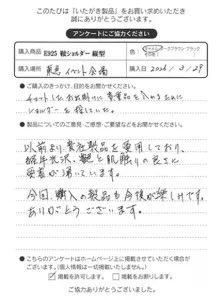 このたびは「いたがき製品」をお買い求めいただき
誠にありがとうございます。
アンケートにご協力ください
購入商品 E925 鞍ショルダー 縦型
色 ダークブラウン ブラック
その他
購入場所 東京 イベント会場
購入日 2024/2/29
●ご購入のきっかけ、目的をお聞かせください。
ちょっとしたお出かけに貴重品を入れるために
ショルダーを探していた。
●製品についてのご意見・ご感想・ご要望などお聞かせください。
以前より貴社製品を愛用しており、
経年光沢、艶と肌触りの良さに
愛着が湧いています。
今回購入の製品も今後が楽しみです。
ありがとうございます。
●こちらのアンケートはホームページ上に掲載させていただく場合が
ございます。(個人情報は一切掲載いたしません)
掲載を許可します。 掲載をお断りします。
ご協力ありがとうございました。